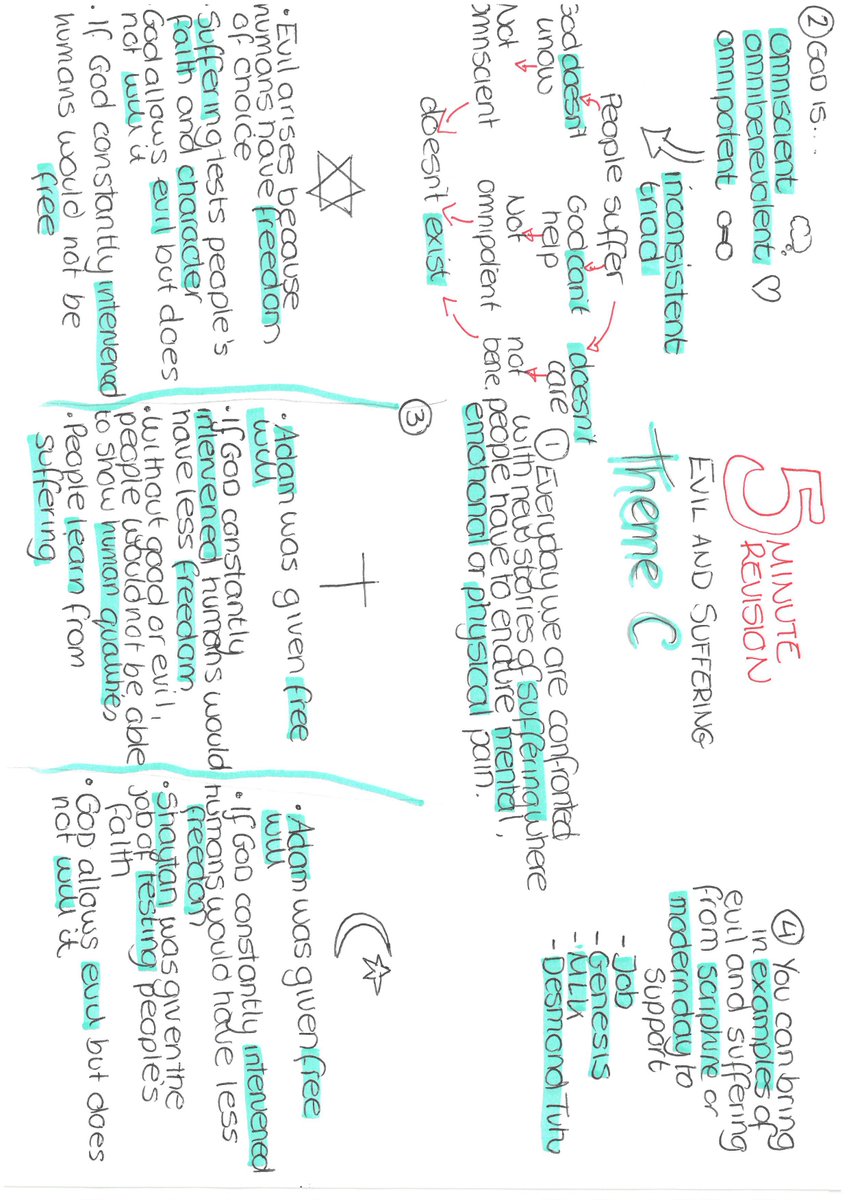 5 MINUTE
REVISION
EVIL AND SUFFERING
Theme C
① Everyday we are confronted
with new stories of suffering where
people have to endure mental,
emotional or physical pain.
② GOD IS...
omniscient
omnibenevolent
omnipotent
inconsistent
triad
People suffer
God doesn't
know
Not
omniscient
God can't
help
Not
omnipotent
doesn't
care
not
bene.
doesn't exist
③
• Evil arises because
humans have freedom
of choice
• Suffering tests people's
faith and character
• God allows evil but does
not will it
• If God constantly intervened
humans would not be
free
• Adam was given free
will
• If God constantly
intervened humans would
have less freedom
• Without good or evil,
people would not be able
to show human qualities
• People learn from
suffering
• Adam was given free
will
• If God constantly intervened
humans would have less
freedom
• Shaytan was given the
job of testing people's
faith
• God allows evil but does
not will it
④ You can bring
in examples of
evil and suffering
from scripture or
modern day to
support
- Job
- Genesis
- MLK
- Desmond Tutu